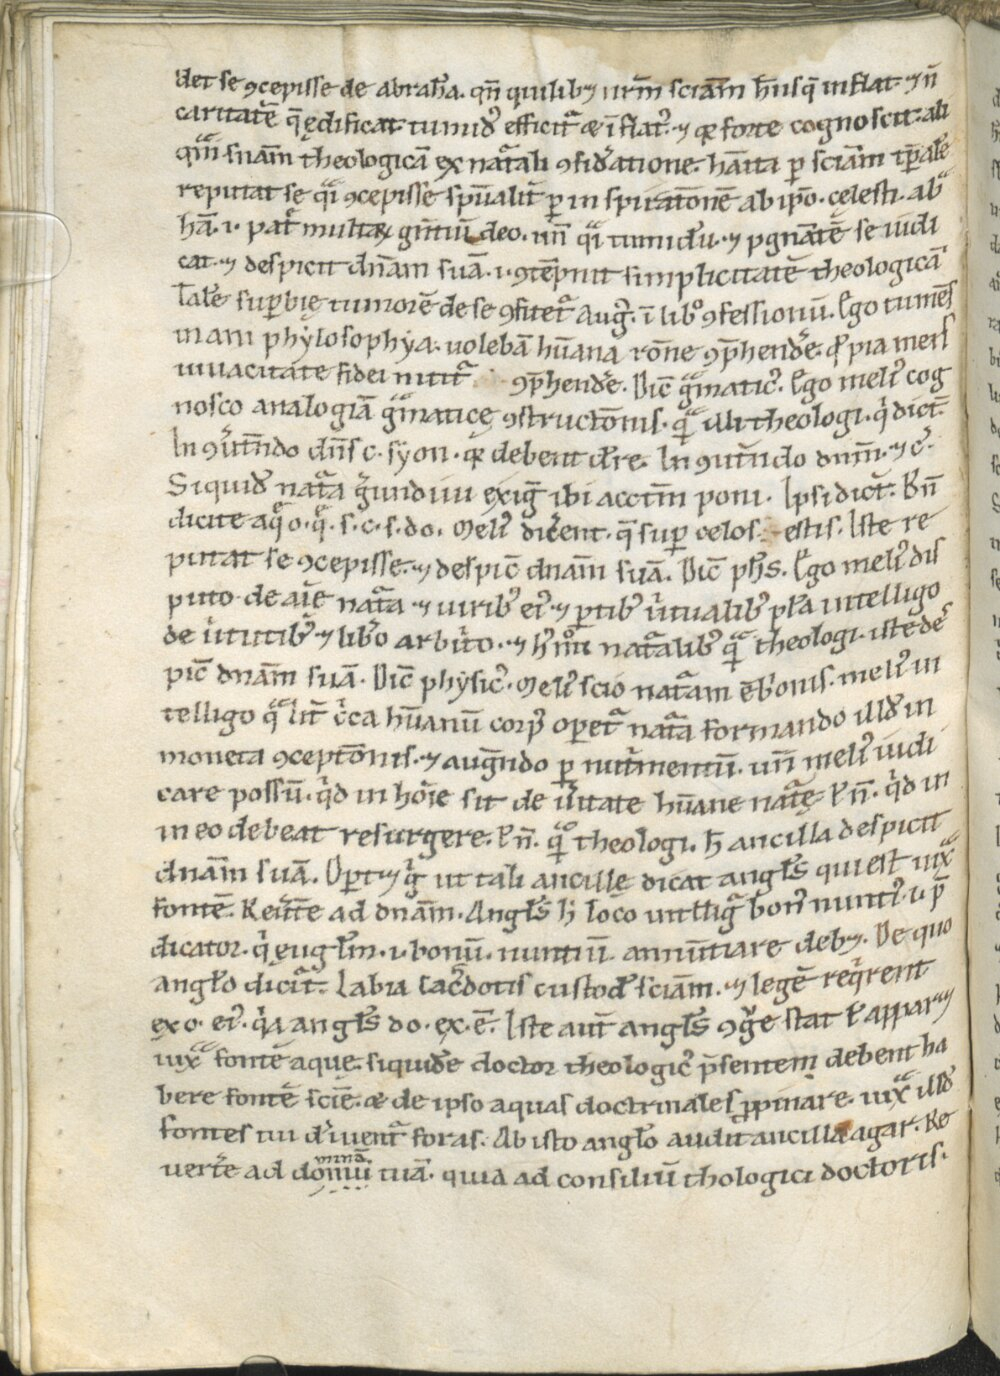 det se ꝯcepisse de abrah̄a. qn̄ quilibꝫ ur̄m sciam̄ h̄usq̄ inflat ⁊ n̄
caritatē q̄ ędificat tumidꝰ efficit᷑ & īflat᷑. ⁊ qꝛ forte cognoscit. ali
qm̄ suam̄ theologicā ex nat᷑ali ꝯsid᷑atione. hāita ꝑ sciam̄ tp̄ale
reputat se qͣi ꝯcepisse sp̄ualit᷑ ꝑ in spirat̄onē ab ip̄o. cęlesti. abͣ
hā. i. pat᷑ multaꝝ gn̄tiū deo. un̄ qͣi tumidū. ⁊ p̄gnātē se iudi
cat. ⁊ despicit dn̄am suā. i. ꝯtēpnit simplicitatē theologicā
Tale suꝑbię tumorē de se ꝯfitet᷑ Aug᷑. ī lib᷑o ꝯfessionū. Ego tumēs
inani phylosophya. uolebā hūana rōne ꝯp̄hende᷑. qͦ pia mens
uiuacitate fidei nitit᷑ ꝯp̄hende᷑. Dic̄ gͣmaticꝰ. Ego melꝰ cog
nosco analogiā gͣmaticę ꝯstruct̄onis. qͣ illi theologi. q̇ dict̄.
In ꝯuͭn̄do dn̄s c. syon. qꝛ debent dice᷑. In ꝯuͭn̄do dnm̄. ⁊ c᷑.
Siquidē nat᷑a g̓undiui exiḡ ibi acctm̄ poni. Ipsi dict᷑. Bn̄
dicite aq̄ o. q̄. s. c. s. do. Melꝰ dic᷑ent. q̄ suꝑ celos estis. Iste re
putat se ꝯcepisse. ⁊ despic̄ dnam̄ suā. Dic̄ ph̄s. Ego melꝰ dis
puto de aīe nat᷑a ⁊ uiribꝰ eiꝰ. ⁊ ꝑtibꝰ ùtualibꝰ pl᷑a intelligo
de ùtutibꝰ. ⁊ lib᷑o arbit᷑o. ⁊ hͥmōi nat᷑alibꝰ qͣ theologi. iste des
pic̄ dnam̄ suā. Dic̄ physicꝰ. Melꝰ scio nat᷑am ēb᷑onis. melꝰ in
telligo qͣlit᷑ c̓ca hūanū corpꝰ oꝑet᷑ nat᷑a formando illud in
moneta ꝯcept̄onis. ⁊ augn̄do ꝑ nut᷑mentū. un̄ melꝰ iudi
care possū. qͥd in hoīe sit de ùitate hūane nat᷑ę ł n̄. qͥd in
in eo debeat resurgere. ł n̄. qͣ theologi. h̄ ancilla despicit
dnam̄ suā. Oꝑt⁊ g̓ ut tali ancillę dicat angl̄s qui est iuxͣ
fontē. Reùte᷑ ad dnam̄. Angl̄s hͥ loco intlligit᷑ bonꝰ nuntiꝰ. i. p̄
dicator. q̇ euglm̄. i. bonū. nuntiū. annūtiare debꝫ. De quo
angl̄o dicit᷑. Labia sac᷑dotis custod᷑ sciam̄. ⁊ legē req̇rent
ex o. eiꝰ. qͥa angl̄s do. ex. ē. Iste aut̄ angl̄s ꝯg̓e stat ł apparꝫ
iuxͣ fontē aquę. siquidē doctor theologicꝰ p̄sentem debent ha
bere fontē sciē. & de ipso aquas doctrinales ꝓpinare. iuxͣ illud
fontes tui d᷑iuent᷑ foras. Ab isto angl̄o audit ancilla agar. Re
uerte᷑ ad domū tuā. quia ad consiliū thologici doctoris.